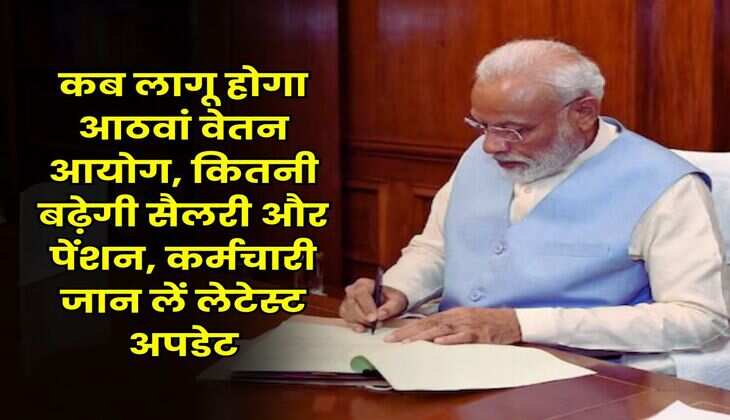 कब लागू होगा
आठवां वेतन
आयोग, कितनी
बढ़ेगी सैलरी और
पेंशन, कर्मचारी
जान लें लेटेस्ट
अपडेट